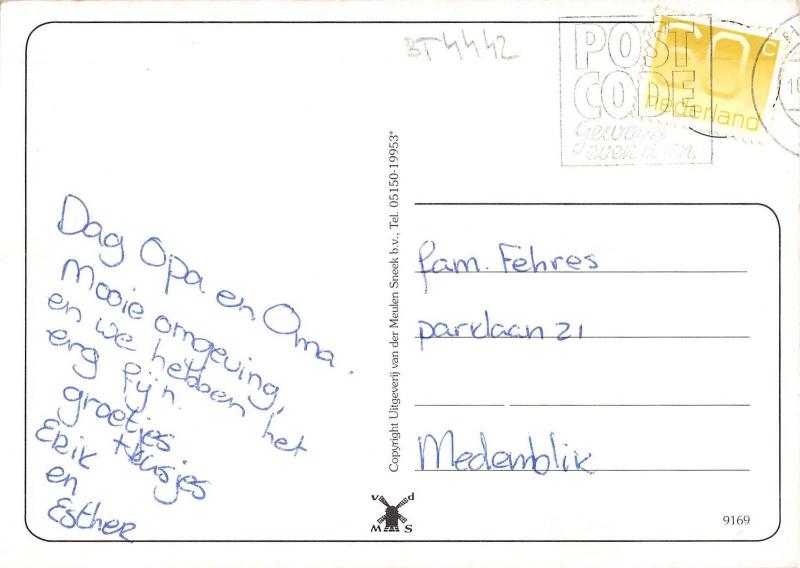 BT4442
POST
CODE
Gewoon
even doen.
60 c
nederland
Dag Opa en Oma.
Mooie omgeving,
en we hebben het
erg fijn.
groetjes
Erik
en
Esther
Copyright Uitgeverij van der Meulen Sneek b.v., Tel. 05150-19953*
fam. Fehres
parklaan 21
Medemblik
v d
M S
9169